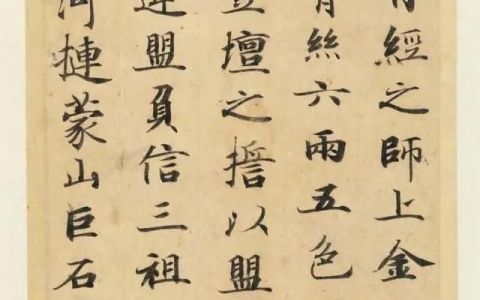 有經之師上金
青絲六兩五色
壇之以盟
違盟負信三祖
河摙蒙山巨石